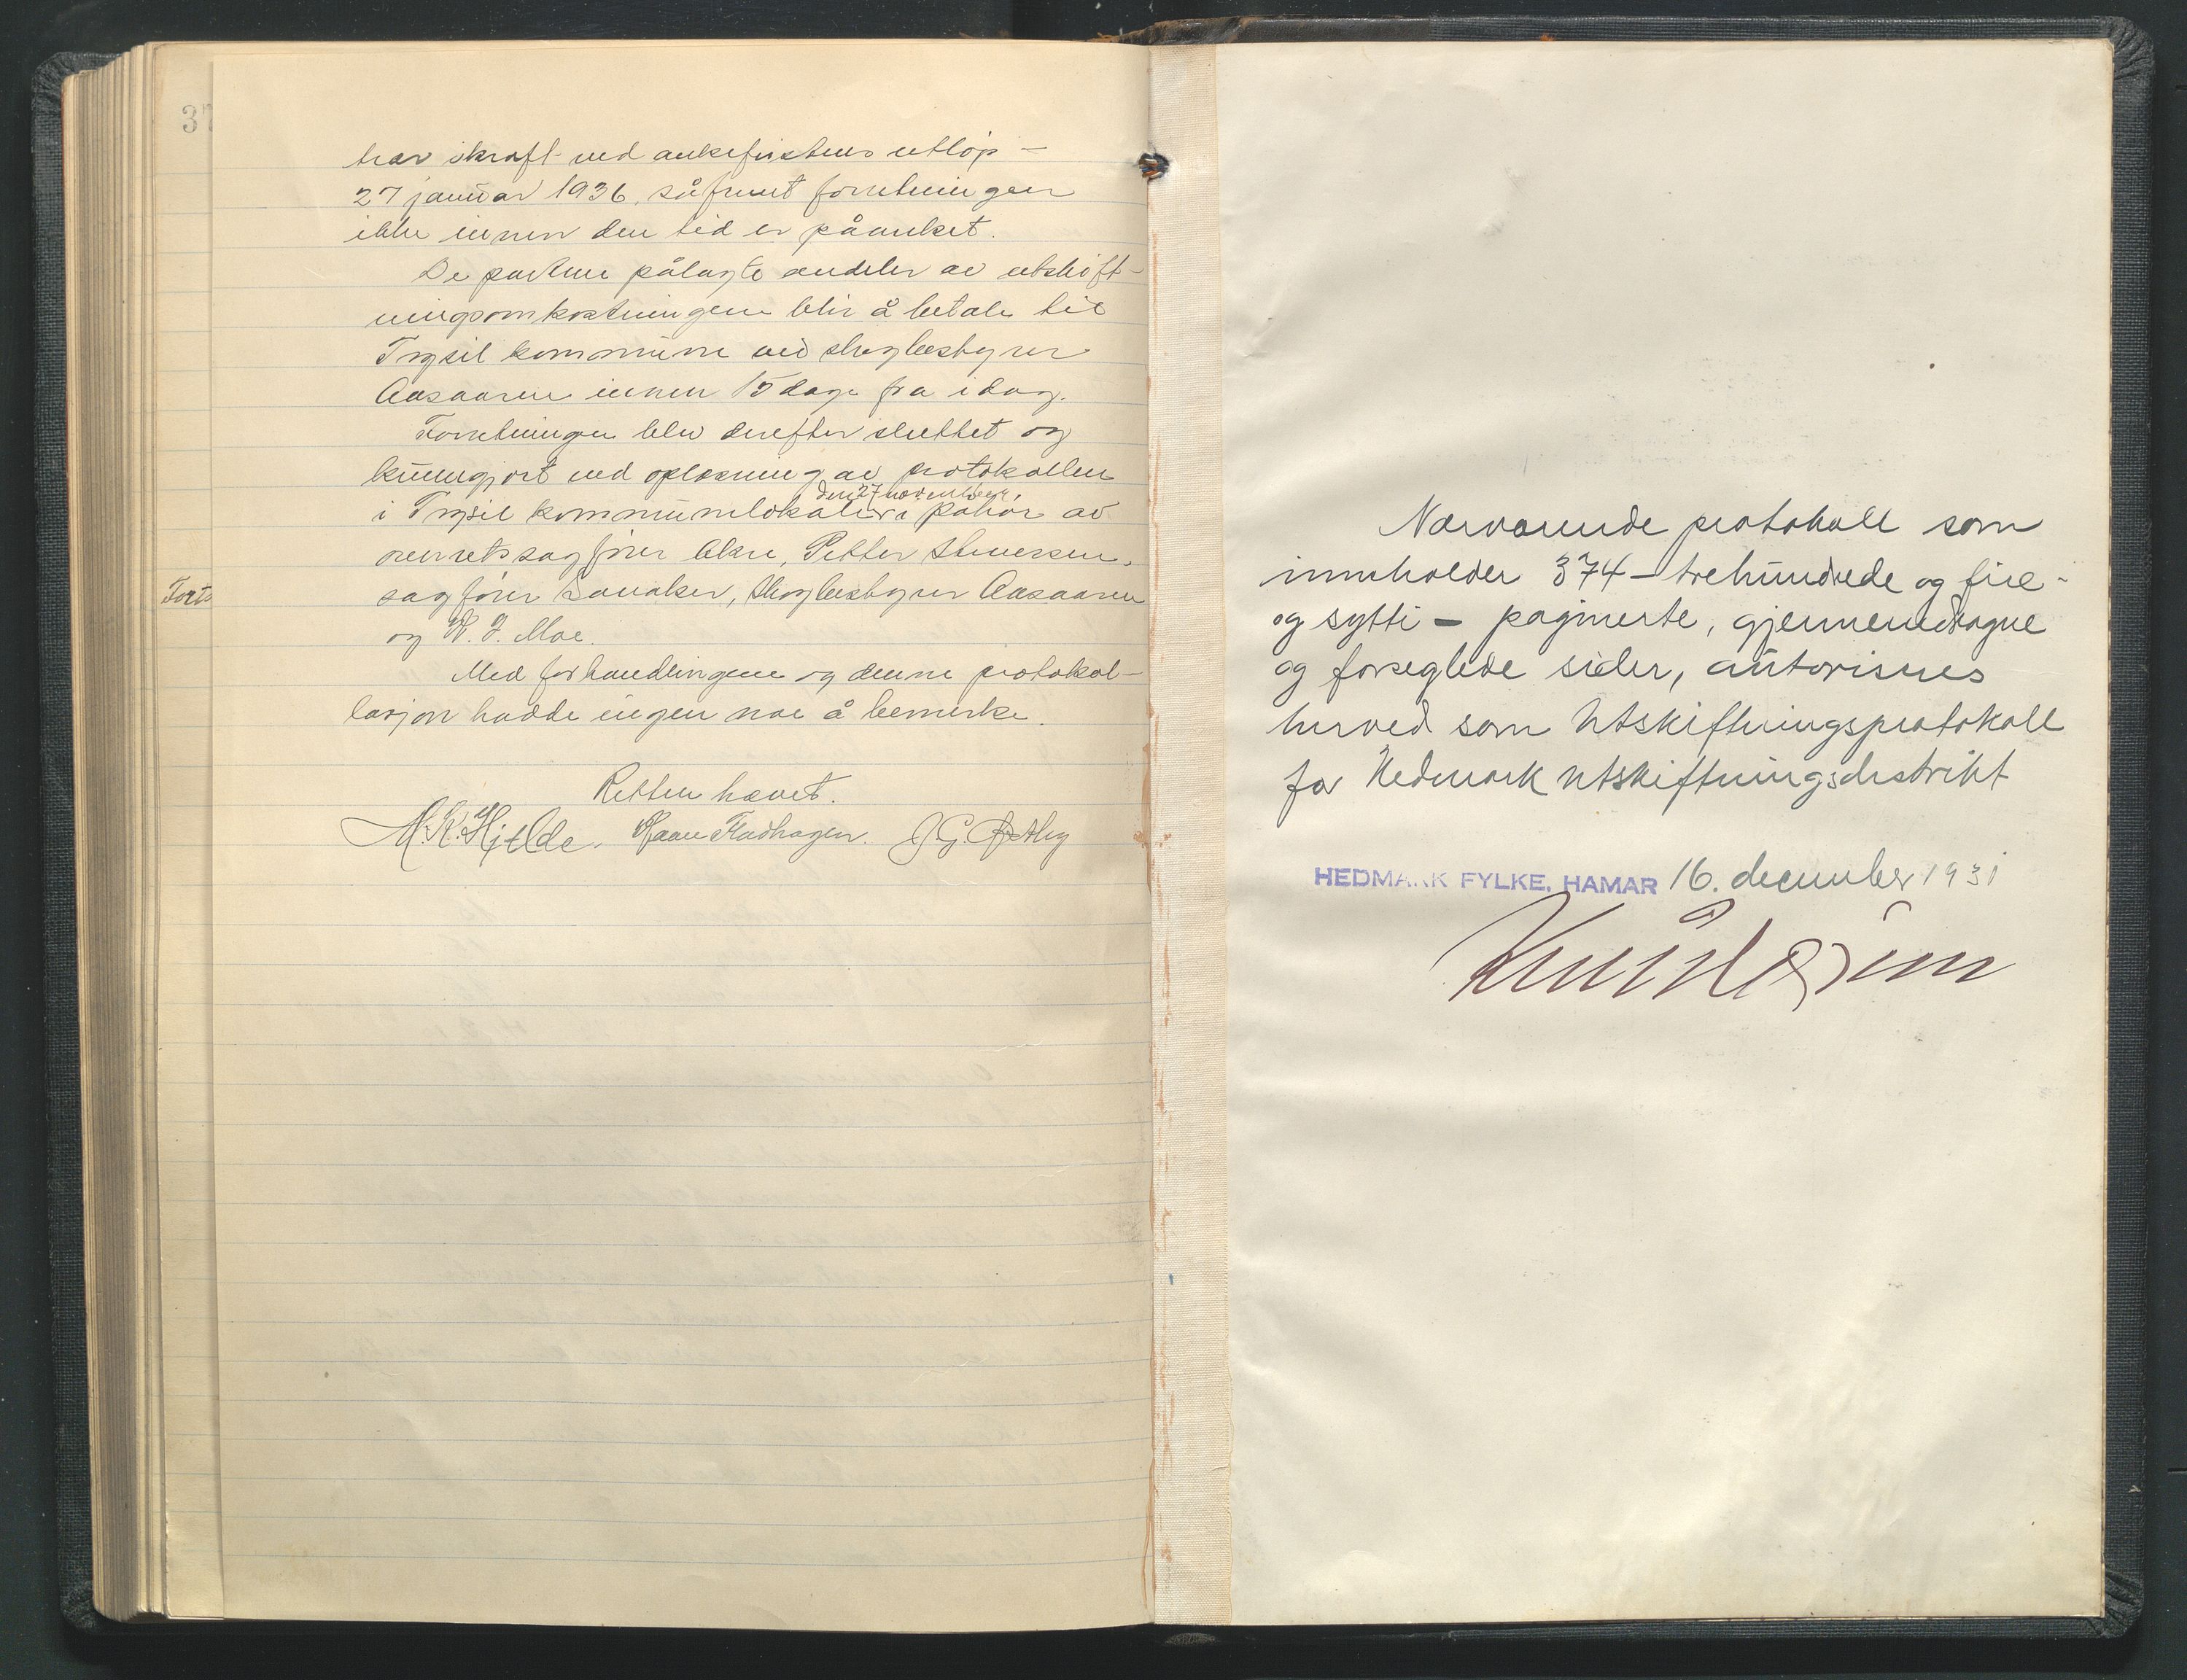 37
trær ikraft ved ankefristens utløp -
27 januar 1936, såfremt forretningen
ikke innen den tid er påanket.
De partene pålagte andeler av utskift-
ningsomkostningene blir å betale til
Trysil kommune ved skogbestyrer
Aasaaren innen 15 dage fra idag.
Forretningen blev derefter sluttet og
kunngjort ved oplesning av protokollen
den 27 november,
i Trysil kommunelokale i påhør av
overretssagfører Økre, Petter Stenersen,
sagfører Lønaker, skogbestyrer Aasaaren
og H. J. Moe.
Forts
Med forhandlingene og denne protokol-
lasjon hadde ingen noe å bemerke.
Retten hævet.
M. K. Hjelde. Haavr Fladhagen. J. G.
Nærværende protokoll som
innholder 374 - trehundrede og fire-
og sytti - paginerte, gjennemdragne
og forseglede sider, autoriseres
herved som Utskiftningsprotokoll
for Hedmark Utskiftningsdistrikt
HEDMARK FYLKE, HAMAR 16. december 1931